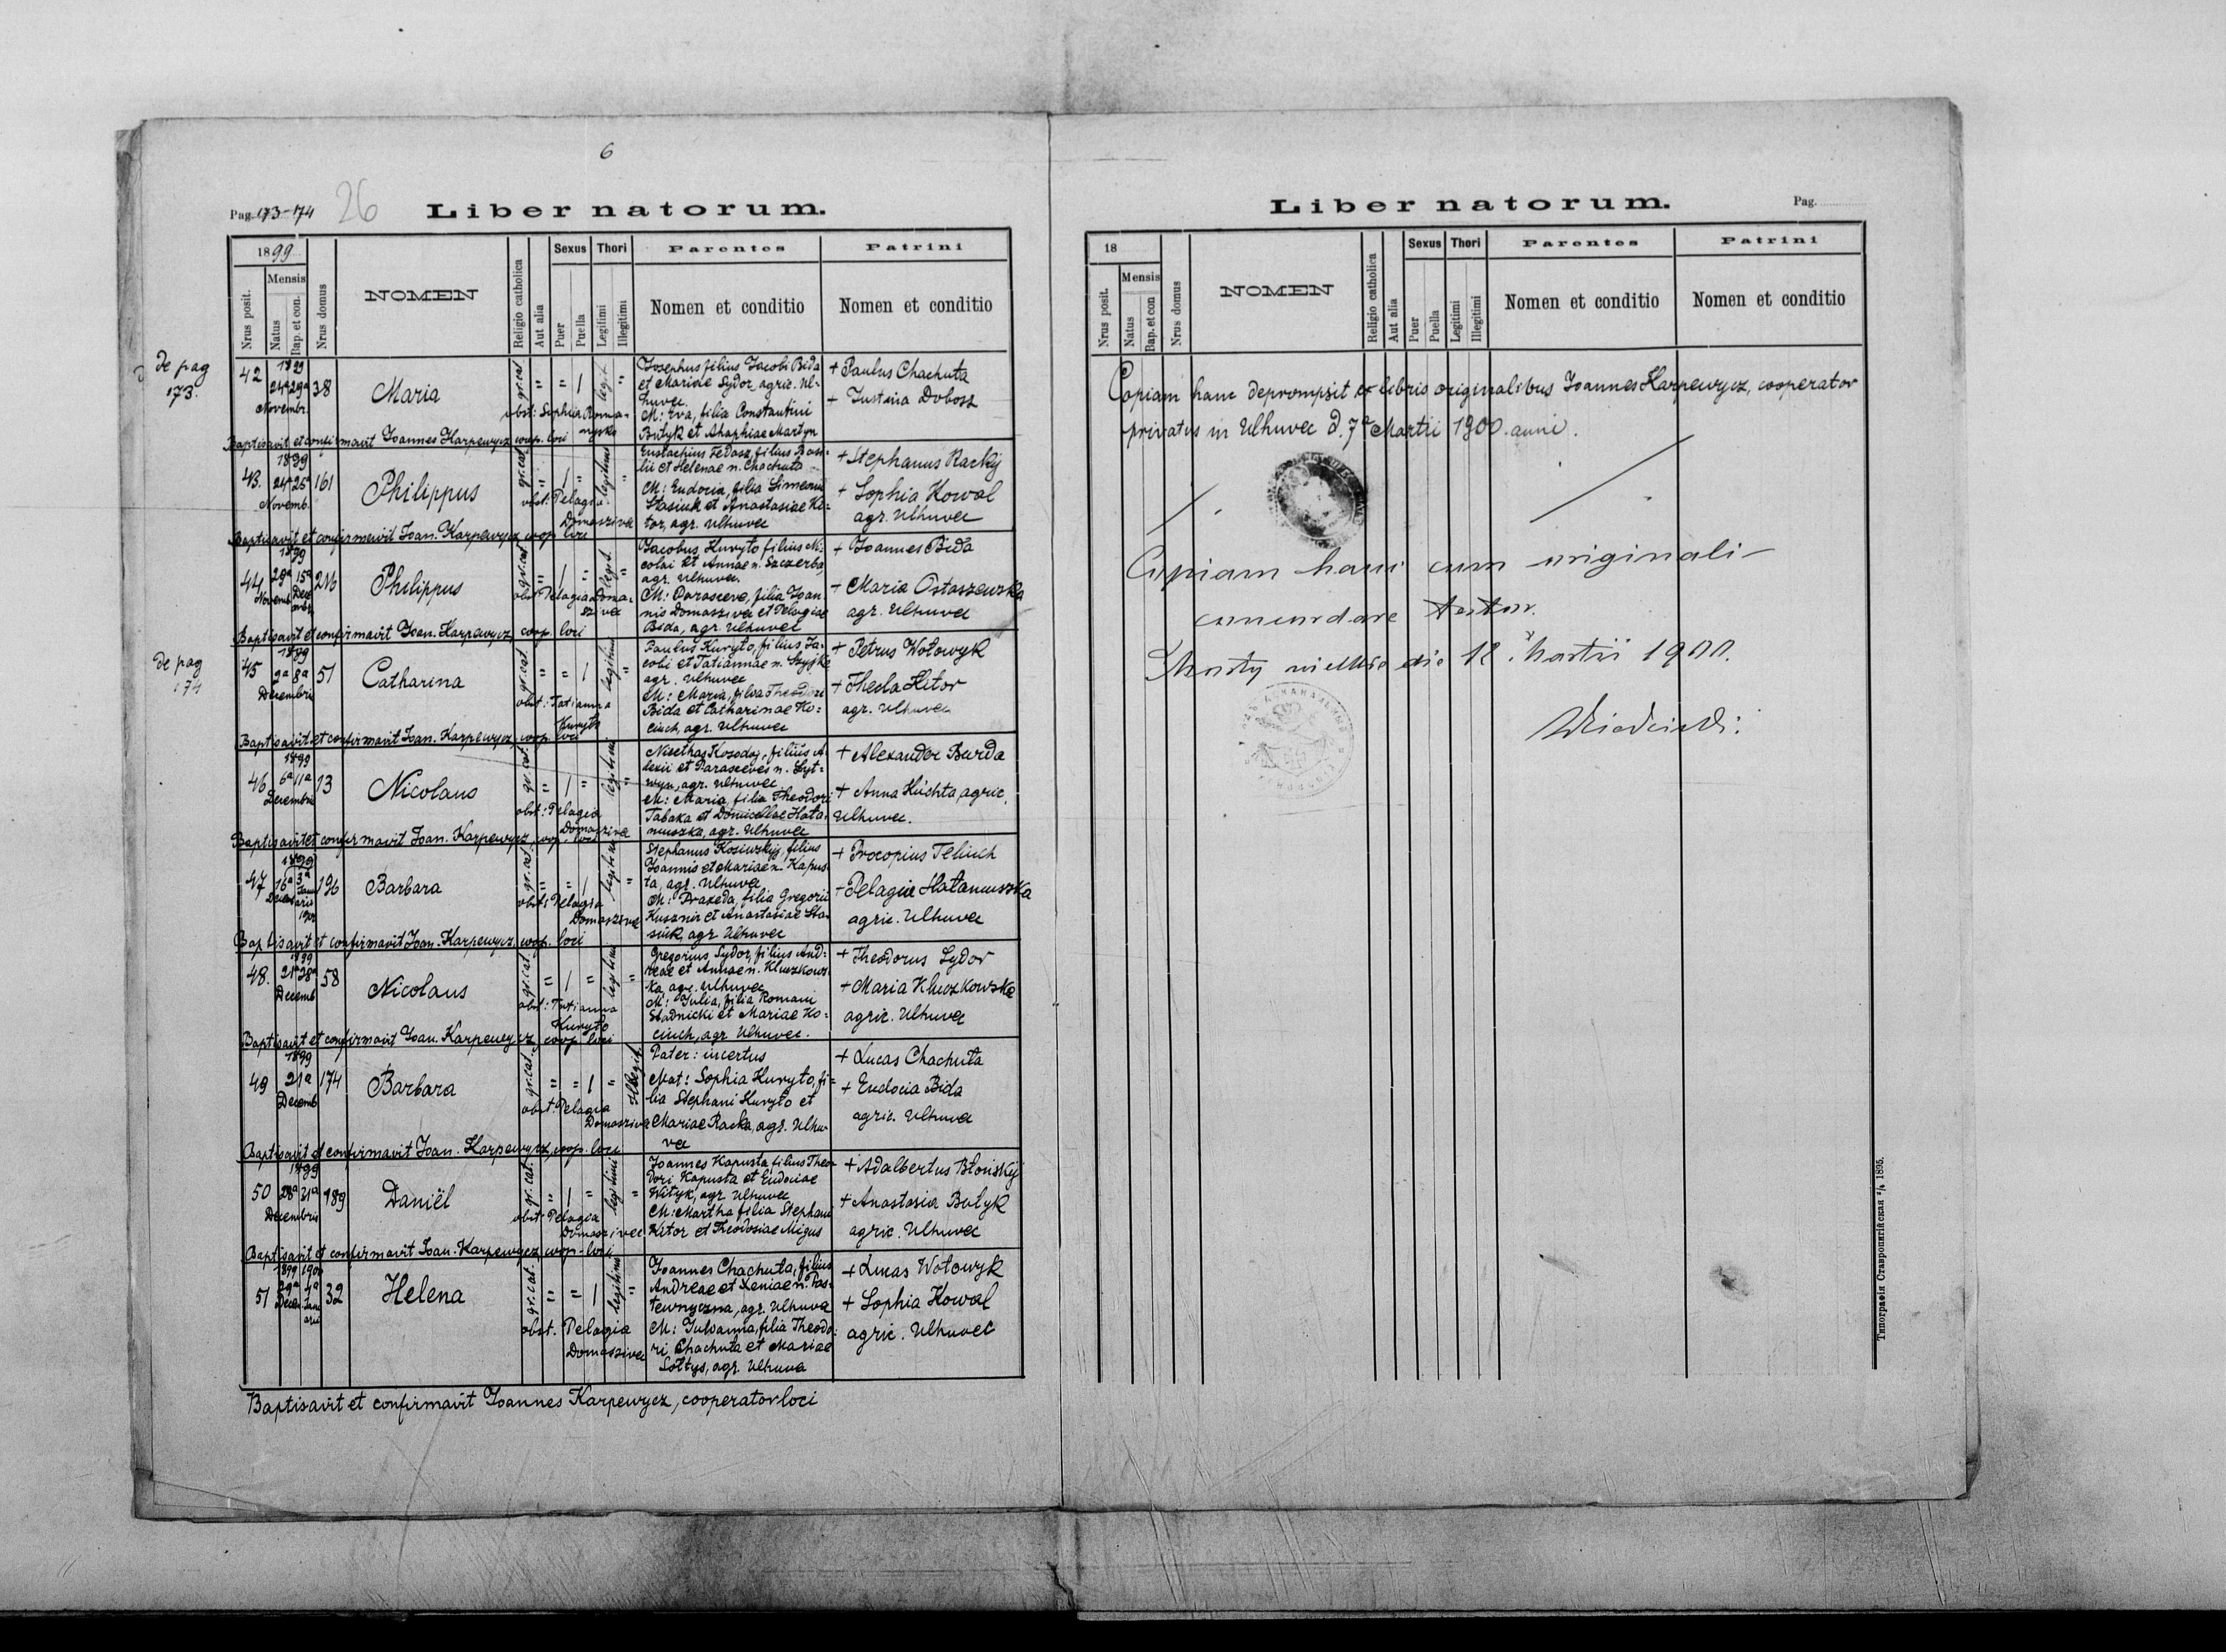 6
Pag. 173-174
26
Liber natorum.
1899
Nrus posit.
Mensis
Natus
Bap. et con.
Nrus domus
NOMEN
Religio catholica
Aut alia
Sexus
Puer
Puella
Thori
Legitimi
Illegitimi
Parentes
Nomen et conditio
Patrini
Nomen et conditio
De pag
173.
42
1899
24ª 29ª
Novembr.
38
Maria
gr. cat.
" = 1 legit. "
obst: Sophia Roma-
nysko
Josephus filius Jacobi Bida
et Mariae Sydor, agric. Ul-
huvec.
M: Eva, filia Constantini
Butyk et Ahaphiae Martyn
+ Paulus Chachuta
+ Justina Dobosz
Baptisavit et confirmavit Joannes Karpewycz, coop. loci
43.
1899
24ª 25ª
Novemb.
161
Philippus
gr. cat.
" 1 " legitimi "
obst: Pelagia
Domaszivec
Eustachius Fedasz, filius Basi-
lii et Helenae n. Chachuta
M: Eudocia, filia Simeonis
Stasiuk et Anastasiae Ki-
tor, agr. Ulhuvec
+ Stephanus Rackij
+ Sophia Kowal
agr. Ulhuvec
Baptisavit et confirmavit Joan. Karpewycz coop loci
44
1899
29ª 15ª
Novemb. Decembr.
216
Philippus
gr. cat.
" 1 = legit. "
obst: Pelagia Doma-
szivec
Jacobus Kuryto filius Ni-
colai et Annae n. Szczerba,
agr. Ulhuvec.
M: Parasceve, filia Joan
nis Domaszivec et Pelagiae
Bida, agr. Ulhuvec
+ Joannes Bida
+ Maria Ostaszewska
agr. Ulhuvec
Baptisavit et confirmavit Joan. Karpewycz coop. loci
De pag
174
45
1899
2ª 8ª
Decembris
51
Catharina
gr. cat.
" = 1 legitimi "
obst: Tatianna
Kuryto
Paulus Kuryto, filius Ja-
cobi et Tatiannae n.
agr. Ulhuvec
M: Maria, filia Theodori
Bida et Catharinae Ko-
ciuch, agr. Ulhuvec
+ Petrus Wołowyk
+ Thecla Kitor
agr. Ulhuvec
Baptisavit et confirmavit Joan. Karpewycz, coop. loci
46
1899
6ª 11ª
Decembris
13
Nicolaus
gr. cat.
= 1 " legitimi "
obst: Pelagia
Domaszivec
Nicethas Kozodoj, filius A-
lexii et Parasceves n. Lyt-
wyn, agr. Ulhuvec
M: Maria, filia Theodori
Tabaka et Domicellae Hata-
nuszka, agr. Ulhuvec
+ Alexander Burda
+ Anna Kuchta, agric.
Ulhuvec.
Baptisavit et confirmavit Joan. Karpewycz, coop. loci
47
1899
16ª 3ª
Decemb. Januarii
1900
196
Barbara
gr. cat.
= = 1 legitimi "
obst: Pelagia
Domaszivec
Stephanus Kosiwskyj, filius
Joannis et Mariae n. Kapus-
ta, agr. Ulhuvec
M: Praxeda, filia Gregorii
Kusznir et Anastasiae Sta-
siuk, agr Ulhuvec
+ Procopius Teliuch
+ Pelagia Hatanuszka
agric. Ulhuvec
Baptisavit et confirmavit Joan. Karpewycz, coop. loci
48.
1899
21ª 28ª
Decemb
58
Nicolaus
gr. cat.
= 1 = legitimi "
obst: Tatianna
Kuryto
Gregorius Sydor, filius And-
reae et Annae n. Kluczkows-
ka, agr. Ulhuvec
M: Julia, filia Romani
Stadnicki et Mariae Ko-
ciuch, agr Ulhuvec.
+ Theodorus Sydor
+ Maria Kluczkowska
agric. Ulhuvec
Baptisavit et confirmavit Joan. Karpewycz, coop loci
49
1899
21ª
Decemb
174
Barbara
gr. cat.
" = 1 " Illegit.
obst: Pelagia
Domaszivec
Pater: incertus
Mat: Sophia Kuryto, fi-
lia Stephani Kuryto et
Mariae Racka, agr. Ulhu-
vec
+ Lucas Chachuta
+ Eudocia Bida
agric. Ulhuvec
Baptisavit et confirmavit Joan. Karpewycz, coop. loci
50
1899
28ª 21ª
Decembris
189
Daniël
gr. cat.
" 1 = legitimi "
obst: Pelagia
Domaszivec
Joannes Kapusta, filius Theo-
dori Kapusta et Eudociae
Wityk, agr. Ulhuvec
M: Martha filia Stephani
Kitor et Theodosiae Migus
+ Adalbertus Błoński
+ Anastasia Butyk
agric. Ulhuvec
Baptisavit et confirmavit Joan. Karpewycz, coop. loci
51
1899 1900
29ª 1ª
Decem. Januarii
32
Helena
gr. cat.
= = 1 legitima "
obst. Pelagia
Domaszivec
Joannes Chachuta, filius
Andreae et Xeniae n. Pas-
tewnyczna, agr. Ulhuvec
M: Julianna, filia Theodo-
ri Chachuta et Mariae
Sołtys, agr. Ulhuvec
+ Lucas Wołowyk
+ Sophia Kowal
agric. Ulhuvec
Baptisavit et confirmavit Joannes Karpewycz, cooperator loci
Liber natorum.
Pag.
18
Nrus posit.
Mensis
Natus
Bap. et con
Nrus domus
NOMEN
Religio catholica
Aut alia
Sexus
Puer
Puella
Thori
Legitimi
Illegitimi
Parentes
Nomen et conditio
Patrini
Nomen et conditio
Copiam hanc deprompsit ex libris originalibus Joannes Karpewycz, cooperator
privatus in Ulhuvec d. 7ª Martii 1900. anni.
Copiam hanc cum originali
concordare testor.
die 12. Martii 1900.
Типографія Ставропигійская 1895.